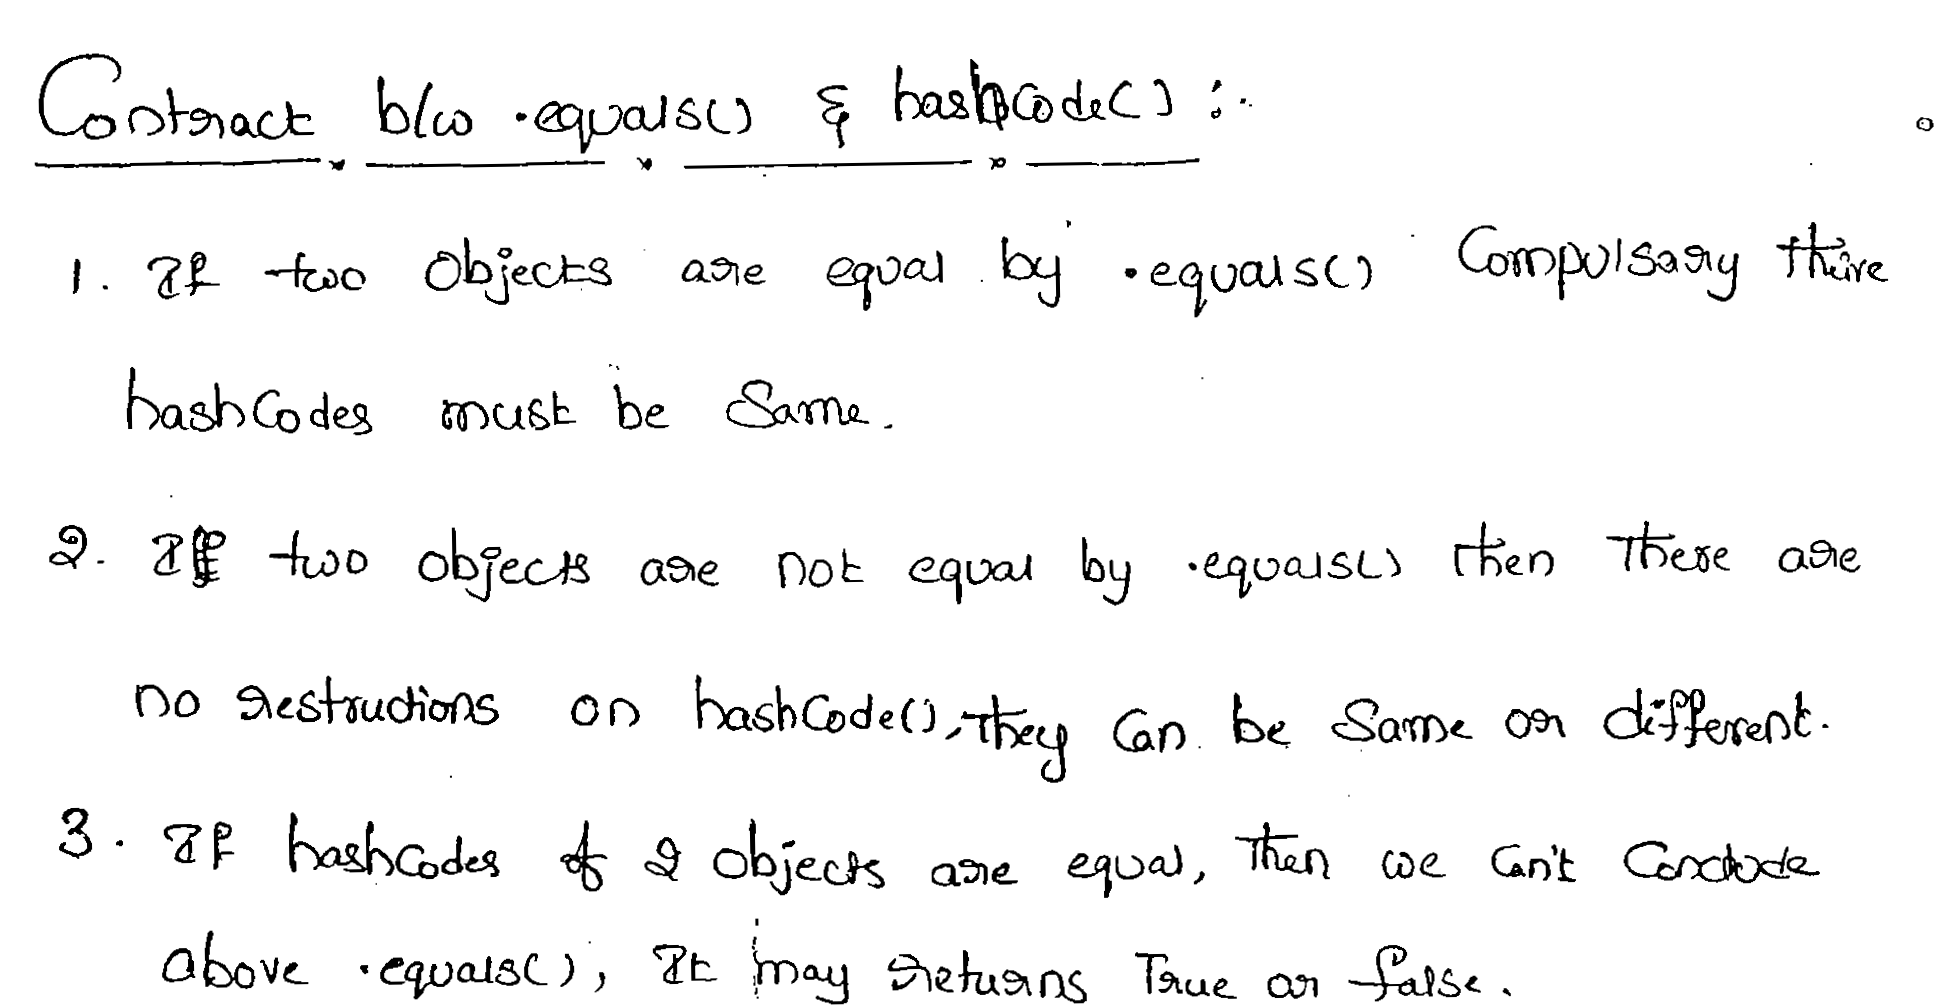 Contract b/w .equals() & hashcode() :-
1. If two Objects are equal by .equals() Compulsary thire
hashCodes must be Same.
2. If two objects are not equal by .equals() then There are
no restructions on hashCode(), They Can be Same or different.
3. If hashcodes of 2 objects are equal, Then we Can't Conclude
above .equals(), It may returns True or false.